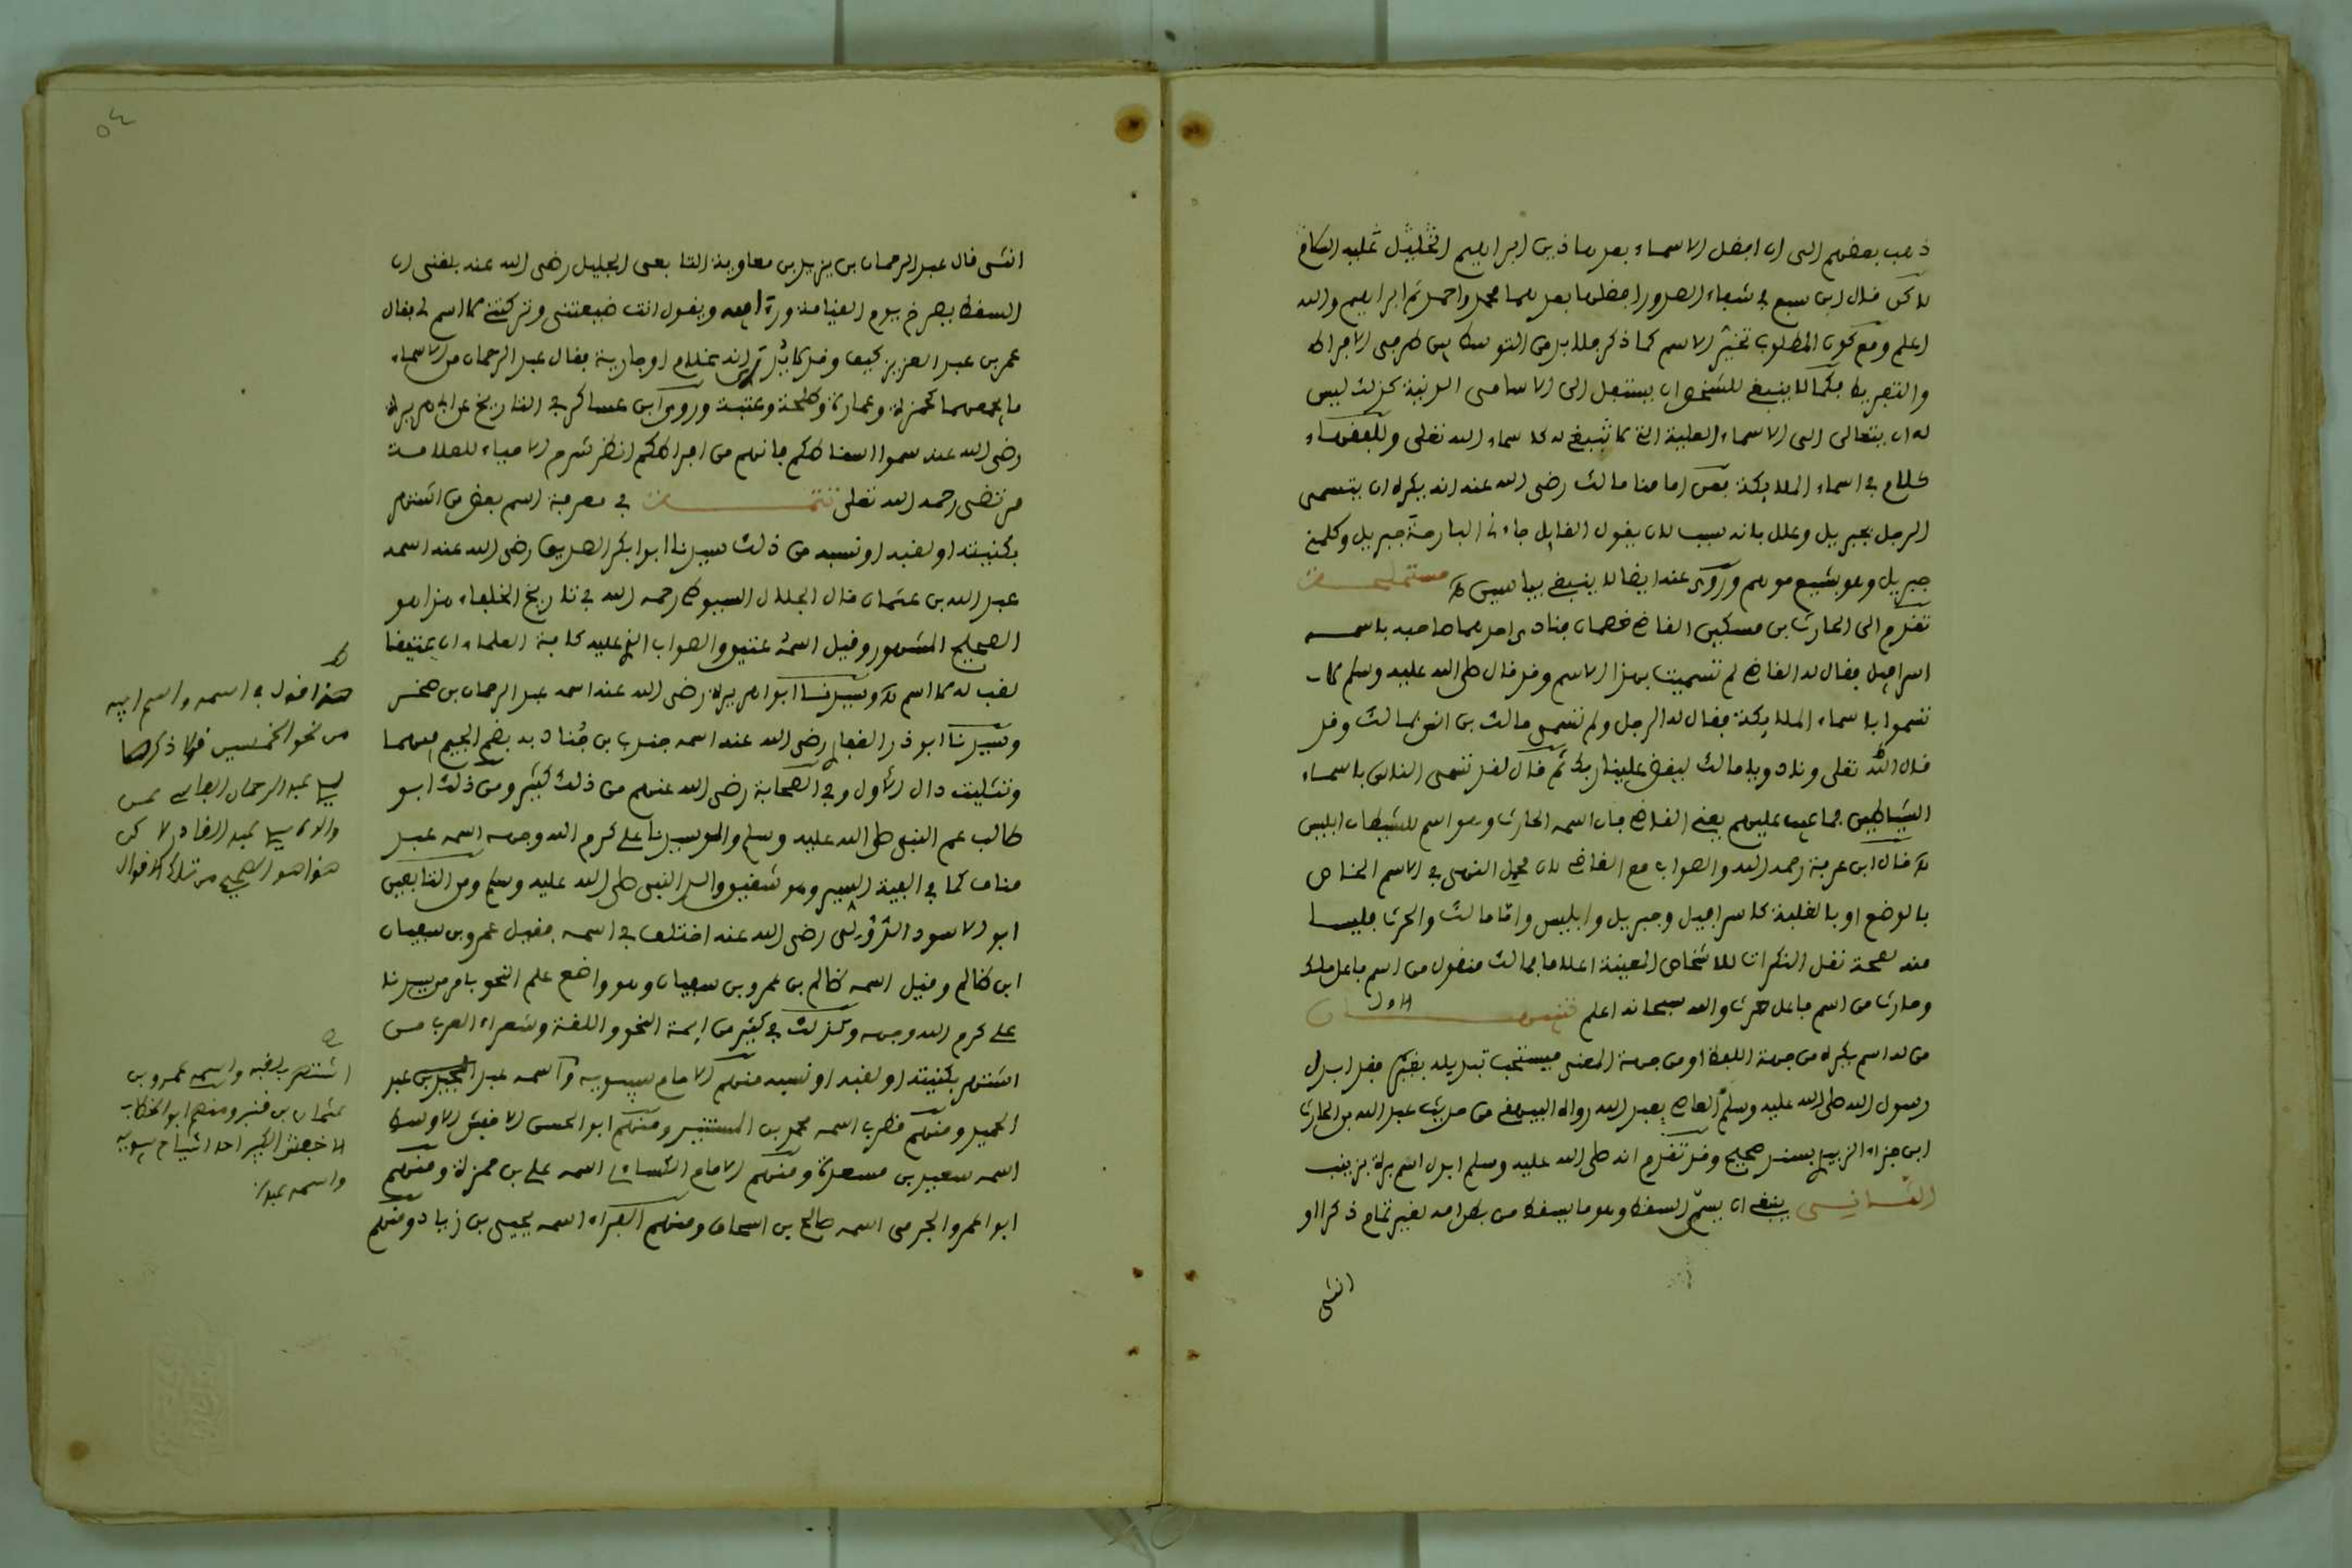 ذهب بعضهم الى ان افضل الاسماء بعد هاذين ابراهيم الخليل عليه السلام
لاكن قال ابن سبع في شفاء الصدور افضلها بعدهما محمد واحمد ثم ابراهيم والله
اعلم ومع كون المطلوب تخيّر الاسم كما ذكر فلا بد من التوسط بين طرفي الافراط
والتفريط فكما لا ينبغي للشخص ان يستفل الى الاسامى الدنية كذلك ليس
له ان يتعالى الى الاسماء العلية التي لا تنبغي له كاسماء الله تعلى وللعلماء
كلام في اسماء الملايكة فعن امامنا مالك رضي الله عنه انه يكره ان يتسمى
الرجل بجبريل وعلل بانه سبب لان يقول القايل جاءني البارحة جبريل وكلمني
جبريل وهو بشيع موهم وروى عنه ايضا لا ينبغي بياسين اه مستملحة
تقدم الى الحارث بن مسكين القاضي خصمان فنادى احدهما صاحبه باسمه
اسرافيل فقال له القاضي لم تسميت بهذا الاسم وقد قال صلى الله عليه وسلم لا
تسموا باسماء الملايكة فقال له الرجل ولم تسمى مالك بن انس بمالك وقد
قال الله تعلى ونادوا يا مالك ليقض علينا ربك ثم قال لقد تسمى الناس باسماء
الشياطين فما عيب عليهم يعني القاضي فان اسمه الحارث وهو اسم للشيطان ابليس
اه قال ابن عرفة رحمه الله والصواب مع القاضي لان محمل النهى في الاسم الخاص
بالوضع او بالغلبة كاسرافيل وجبريل وابليس واما مالك والحرث فليسا
منه لصحة نقل النكرات للاشخاص المعينة اعلاما فمالك منقول من اسم فاعل ملك
وحارث من اسم فاعل حرث والله سبحانه اعلم تنبيهان الاول
من له اسم يكره من جهة اللفظ او من جهة المعنى فيستحب تبديله بغيره فقد ابدل
رسول الله صلى الله عليه وسلم العاصي بعبد الله رواه البيهقي من حديث عبد الله بن الحارث
ابن جزء الزبيدي بسند صحيح وقد تقدم انه صلى الله عليه وسلم ابدل اسم برة بزينب
الثاني ينبغي ان يسمّى السقط وهو ما يسقط من بطن امه لغير تمام ذكرا او
انثى
٥٤
انثى قال عبد الرحمان بن يزيد بن معاوية التابعى الجليل رضي الله عنه بلغنى ان
السقط يصرخ يوم القيامة وراء ابيه ويقول انت ضيعتنى وتركتنى لا اسم لي فقال
عمر بن عبد العزيز كيف وقد لا يدرى انه غلام او جارية فقال عبد الرحمان من الاسماء
ما يجمعهما كحمزة وعمارة وطلحة وعتبة وروى ابن عساكر في التاريخ عن ابي هريرة
رضي الله عنه سموا اسقاطكم فانهم من افراطكم انظر شرح الاحياء للعلامة
مرتضى رحمه الله تعلى تتمة في معرفة اسم بعض من اشتهر
بكنيته او لقبه او نسبه من ذلك سيدنا ابو ابكر الصديق رضي الله عنه اسمه
عبد الله بن عثمان قال الجلال السيوطي رحمه الله في تاريخ الخلفاء هذا هو
الصحيح المشهور وقيل اسمه عتيق والصواب الذي عليه كافة العلماء ان عتيقا
لقب له لا اسم اه وسيدنا ابو اهريرة رضي الله عنه اسمه عبد الرحمان بن صخر
وسيدنا ابو ذر الغفاري رضي الله عنه اسمه جندب بن جُنادة بضم الجيم فيهما
وتثليث دال الاول وفي الصحابة رضي الله عنهم من ذلك كثير ومن ذلك ابو
طالب عم النبي صلى الله عليه وسلم والد سيدنا علي كرم الله وجهه اسمه عبد
مناف كما في الفية السير وهو شقيق والد النبى صلى الله عليه وسلم ومن التابعين
ابو الاسود الدؤلى رضي الله عنه اختلف في اسمه فقيل عمرو بن سفيان
ابن ظالم وقيل اسمه ظالم بن عمرو بن سفيان وهو واضع علم النحو بامر من سيدنا
علي كرم الله وجهه وكذلك في كثير من ايمة النحو واللغة وشعراء العرب من
اشتهر بكنيته او لقبه او نسبه منهم الامام سيبويه واسمه عبد المجيد بن عبد
الحميد ومنهم قطرب اسمه محمد بن المستنير ومنهم ابو الحسن الاخفش الاوسط
اسمه سعيد بن مسعدة ومنهم الامام الكساءي اسمه علي بن حمزة ومنهم
ابو اعمرو الجرمى اسمه صالح بن اسحاق ومنهم الفراء اسمه يحيى بن زياد ومنهم
ط
هذا قول في اسمه واسم ابيه
من نحو الخمسين قولا ذكرها
عبد الرحمان الفاسي عن
والده عبد القادر لاكن
هذا هو الصحيح من تلك الاقوال
اشتهر بلقبه واسمه عمرو بن
عثمان بن قنبر ومنهم ابو الخطاب
الاخفش الكبير احد اشياخ سيبويه
واسمه عبد